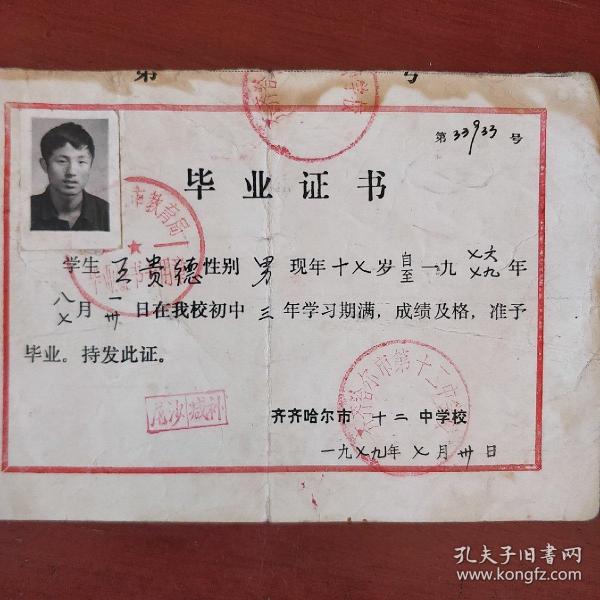 第 号
第33933号
毕业证书
学生王贵德性别男现年十七岁自至一九七六七九年
八七月一卅日在我校初中三年学习期满，成绩及格，准予
毕业。持发此证。
齐齐哈尔市十二中学校
一九七九年七月卅日
市教育局
毕业证书专用章
齐齐哈尔市第十二中学校
孔夫子旧书网
www.kongfz.com